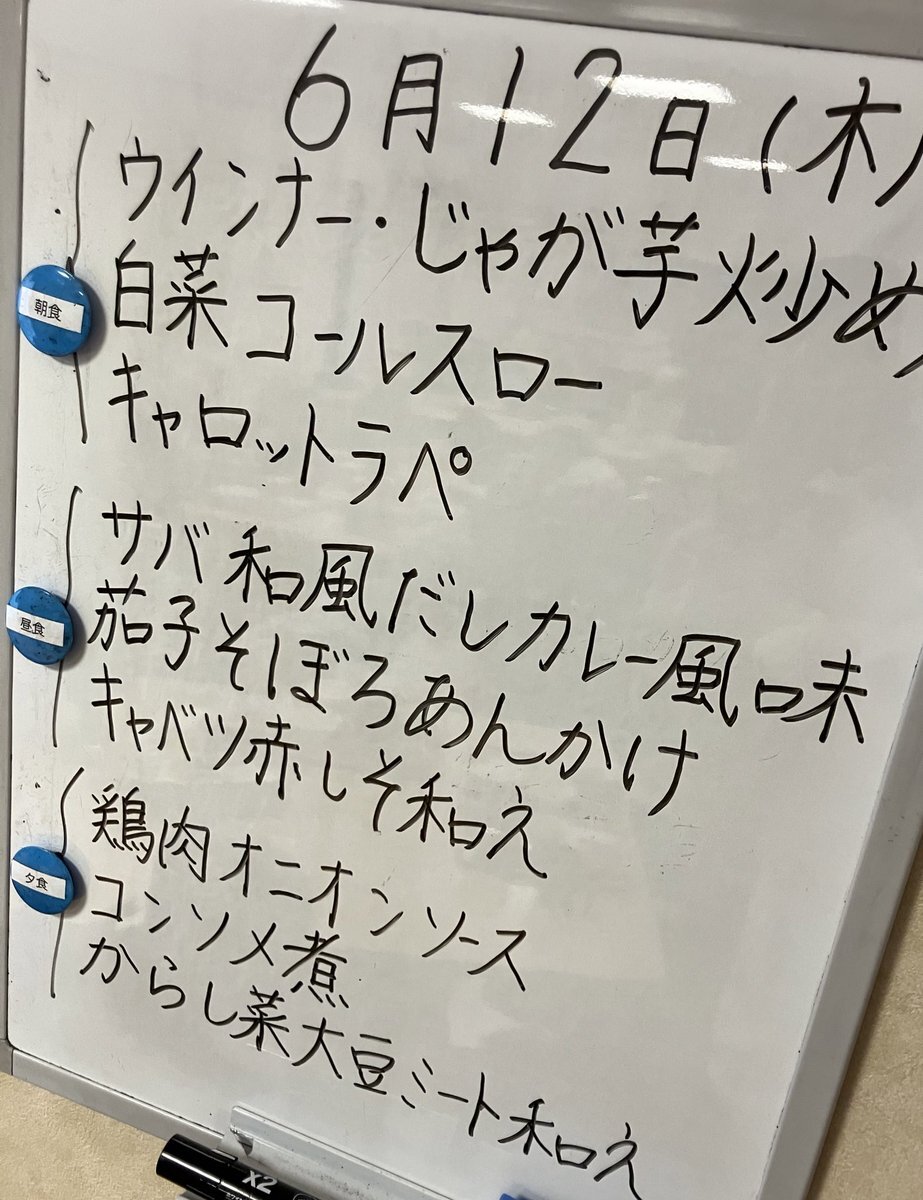 6月12日(木)
朝食
ウインナー・じゃが芋炒め
白菜コールスロー
キャロットラペ
昼食
サバ和風だしカレー風味
茄子そぼろあんかけ
キャベツ赤しそ和え
夕食
鶏肉オニオンソース
コンソメ煮
からし菜大豆ミート和え
X2